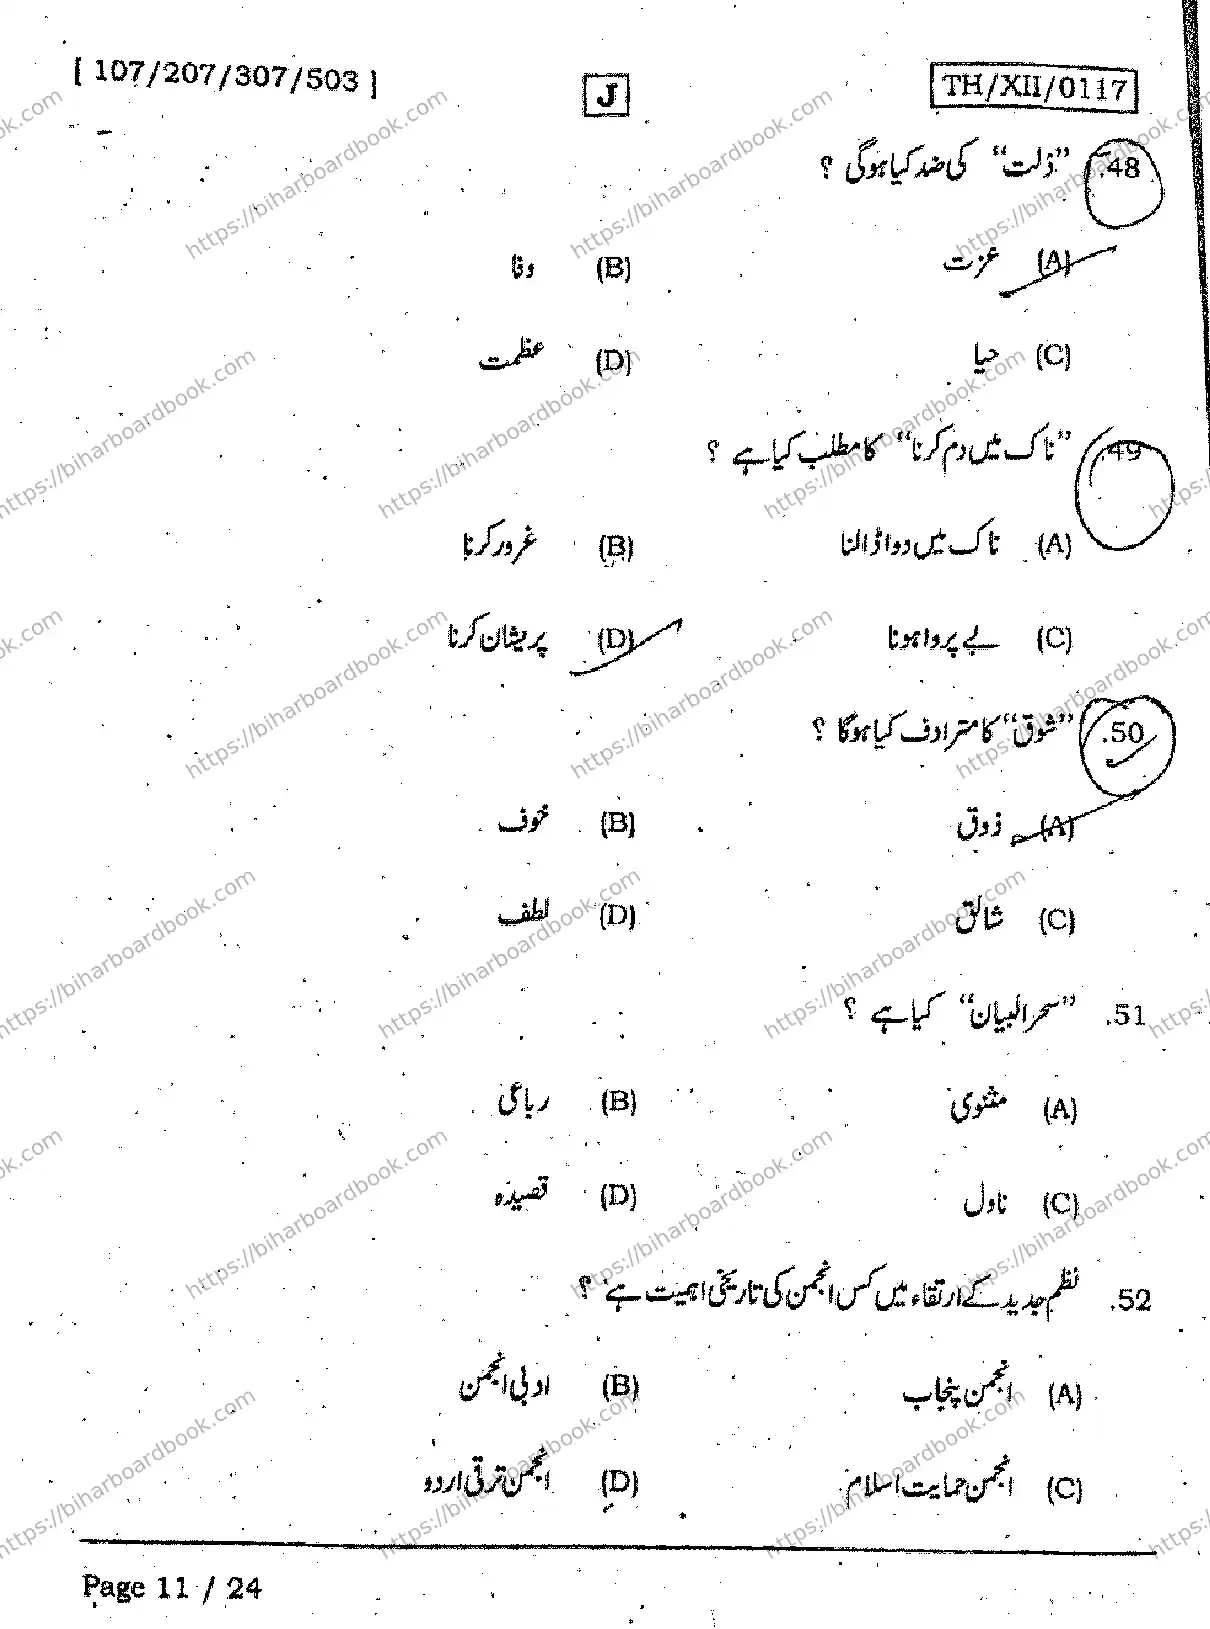 [ 107/207/307/503 ]
J
TH/XII/0117
48. ”ذلت“ کی ضد کیا ہوگی ؟
(A) عزت (B) وفا
(C) حیا (D) عظمت
49. ”ناک میں دم کرنا“ کا مطلب کیا ہے ؟
(A) ناک میں دوا ڈالنا (B) غرور کرنا
(C) بے پروا ہونا (D) پریشان کرنا
50. ”شوق“ کا مترادف کیا ہوگا ؟
(A) ذوق (B) خوف
(C) شالق (D) لطف
51. ”سحرالبیان“ کیا ہے ؟
(A) مثنوی (B) رباعی
(C) ناول (D) قصیدہ
52. نظم جدید کے ارتقاء میں کس انجمن کی تاریخی اہمیت ہے ؟
(A) انجمن پنجاب (B) ادبی انجمن
(C) انجمن حمایت اسلام (D) انجمن ترقی اردو
Page 11 / 24
https://biharboardbook.com